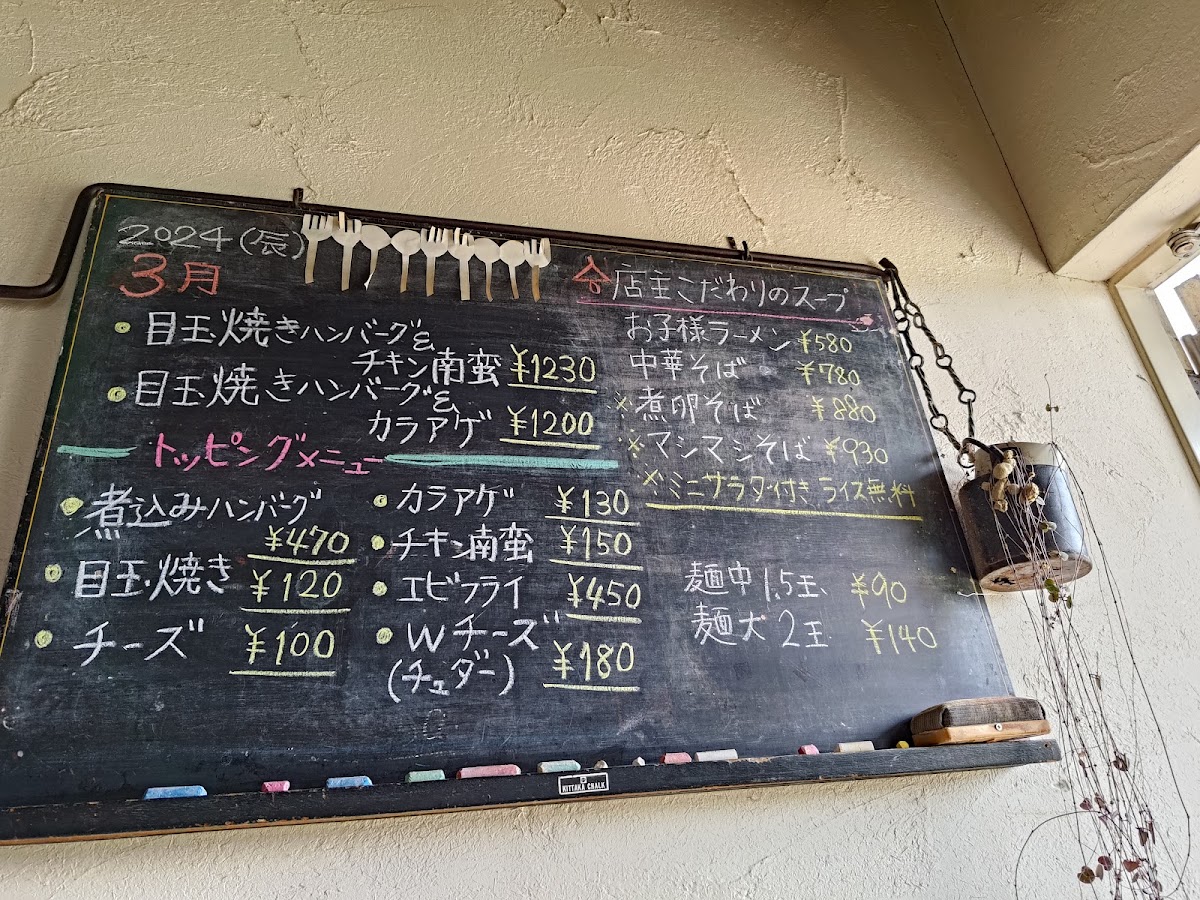 2024(辰)
3月
目玉焼きハンバーグ&
チキン南蛮 ¥1230
目玉焼きハンバーグ&
カラアゲ ¥1200
トッピングメニュー
煮込みハンバーグ
¥470
目玉焼き ¥120
チーズ ¥100
カラアゲ ¥130
チキン南蛮 ¥150
エビフライ ¥450
Wチーズ
(チェダー) ¥180
店主こだわりのスープ
お子様ラーメン ¥580
中華そば ¥780
※煮卵そば ¥880
※マシマシそば ¥930
※ミニサラダ付き ライス無料
麺中 1,5玉、 ¥90
麺大 2玉 ¥140
KITPAKA CHALK